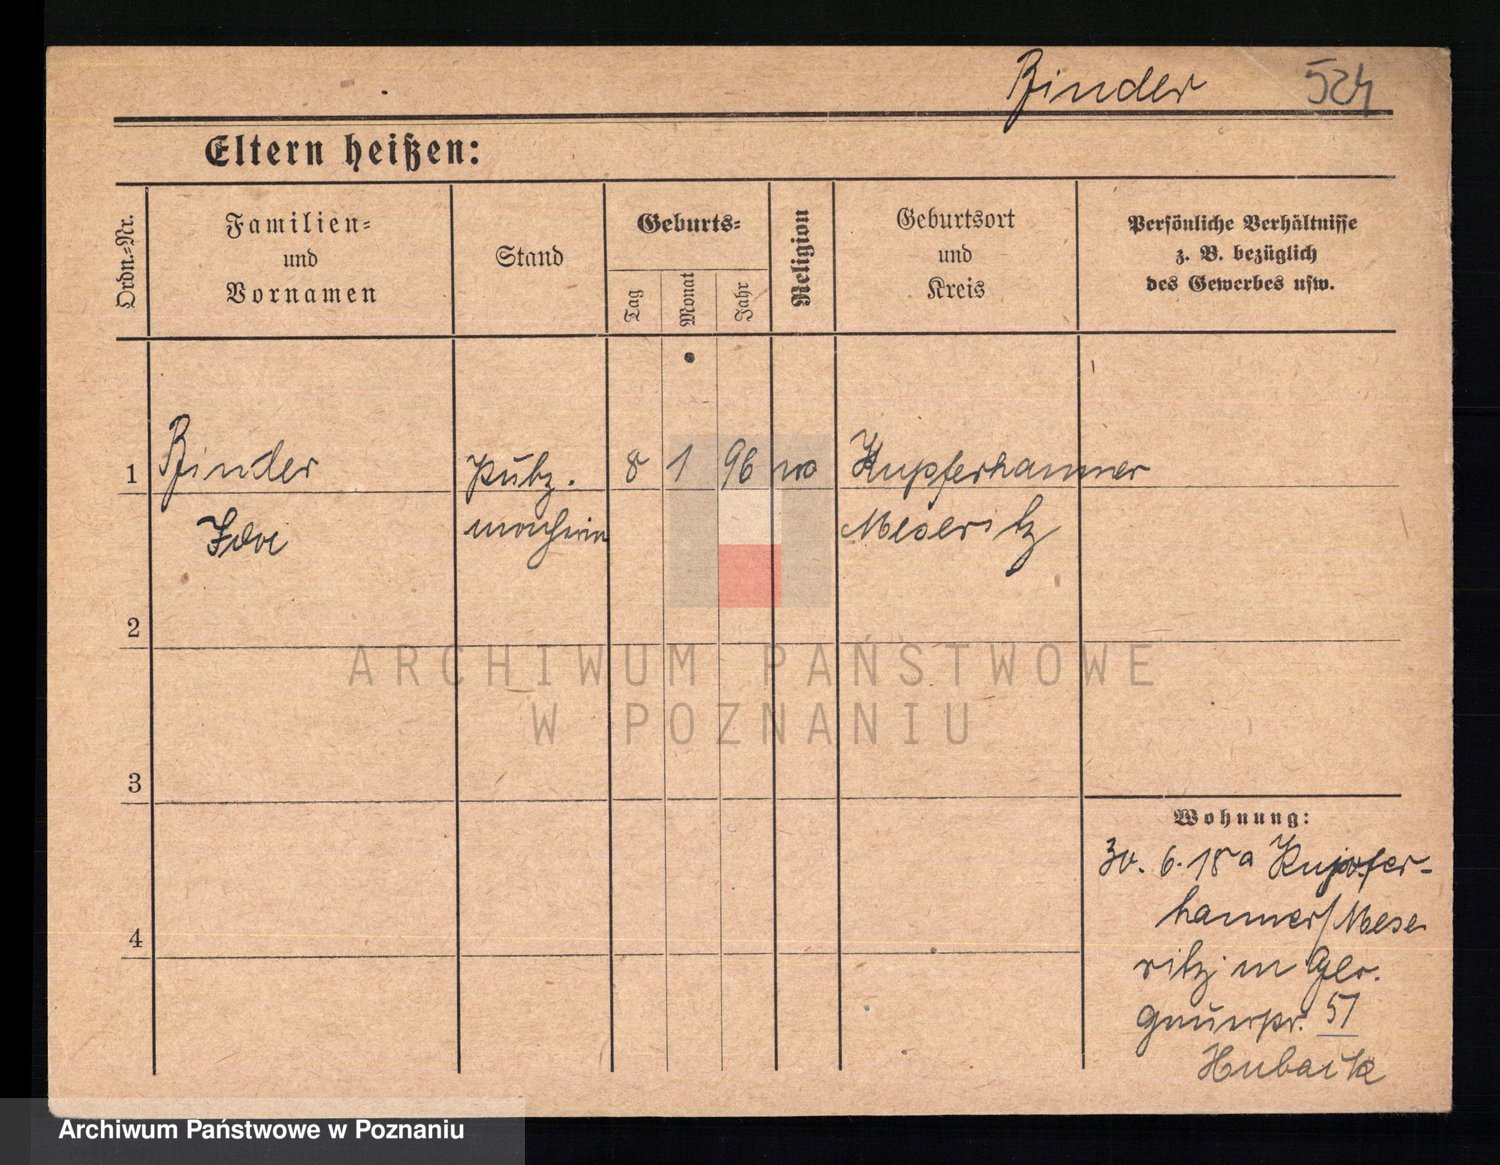 Binder 524
Eltern heißen:
Ordn.-Nr.
Familien-
und
Vornamen
Stand
Geburts-
Tag
Monat
Jahr
Religion
Geburtsort
und
Kreis
Persönliche Verhältnisse
z. B. bezüglich
des Gewerbes usw.
1 Binder Putz. 8 1 96 Kupferhammer
Ida macherin Meseritz
2
3
4
Wohnung:
30. 6. 18 a Kupfer-
hammer/Mese
ritz in
51
Hubatk
ARCHIWUM PAŃSTWOWE
W POZNANIU
Archiwum Państwowe w Poznaniu